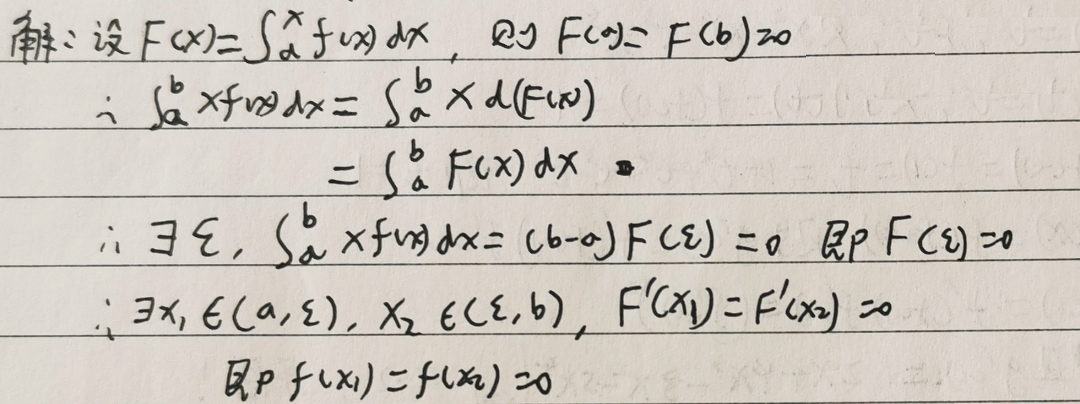 解：设 F(x)=∫ₐˣ f(x) dx，则 F(a)=F(b)=0
∴ ∫ₐᵇ xf(x)dx = ∫ₐᵇ x d(F(x))
= ∫ₐᵇ F(x) dx
∴ ∃ε, ∫ₐᵇ xf(x)dx = (b-a)F(ε) = 0 即 F(ε)=0
∴ ∃x₁∈(a,ε), x₂∈(ε,b), F'(x₁)=F'(x₂)=0
即 f(x₁)=f(x₂)=0